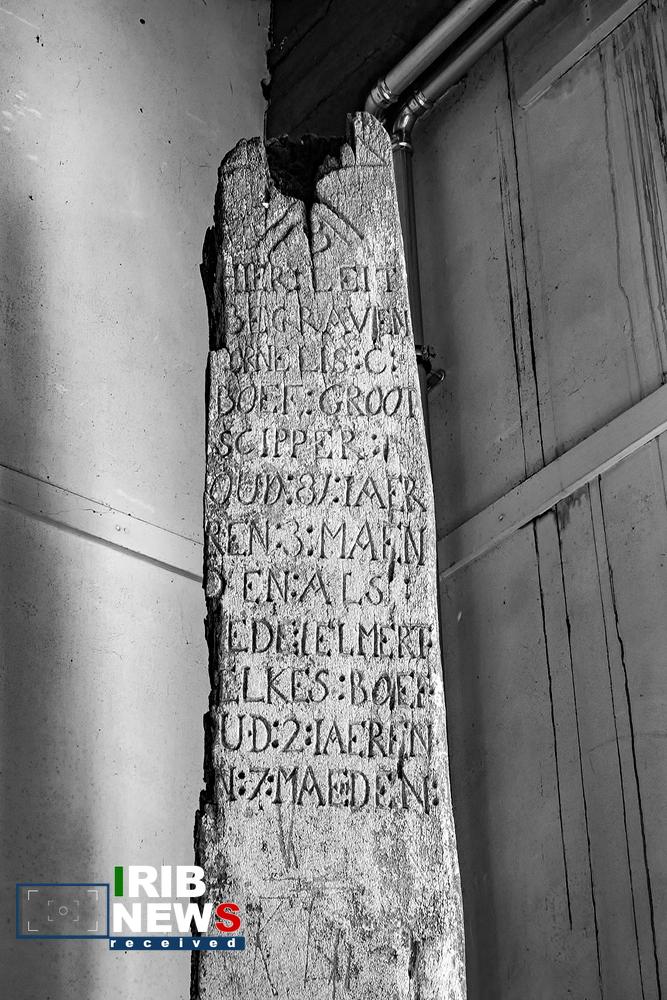 HIER:LEIT
BEGRAVEN
ORNELIS:C:
BOEF:GROOT
SCIPPER:
OUD:81:IAER
REN:3:MAEN
D EN:ALS
EDE:IELMERT:
ELKES:BOEF:
UD:2:IAEREN
N:7:MAEDEN:
IRIB
NEWS
received